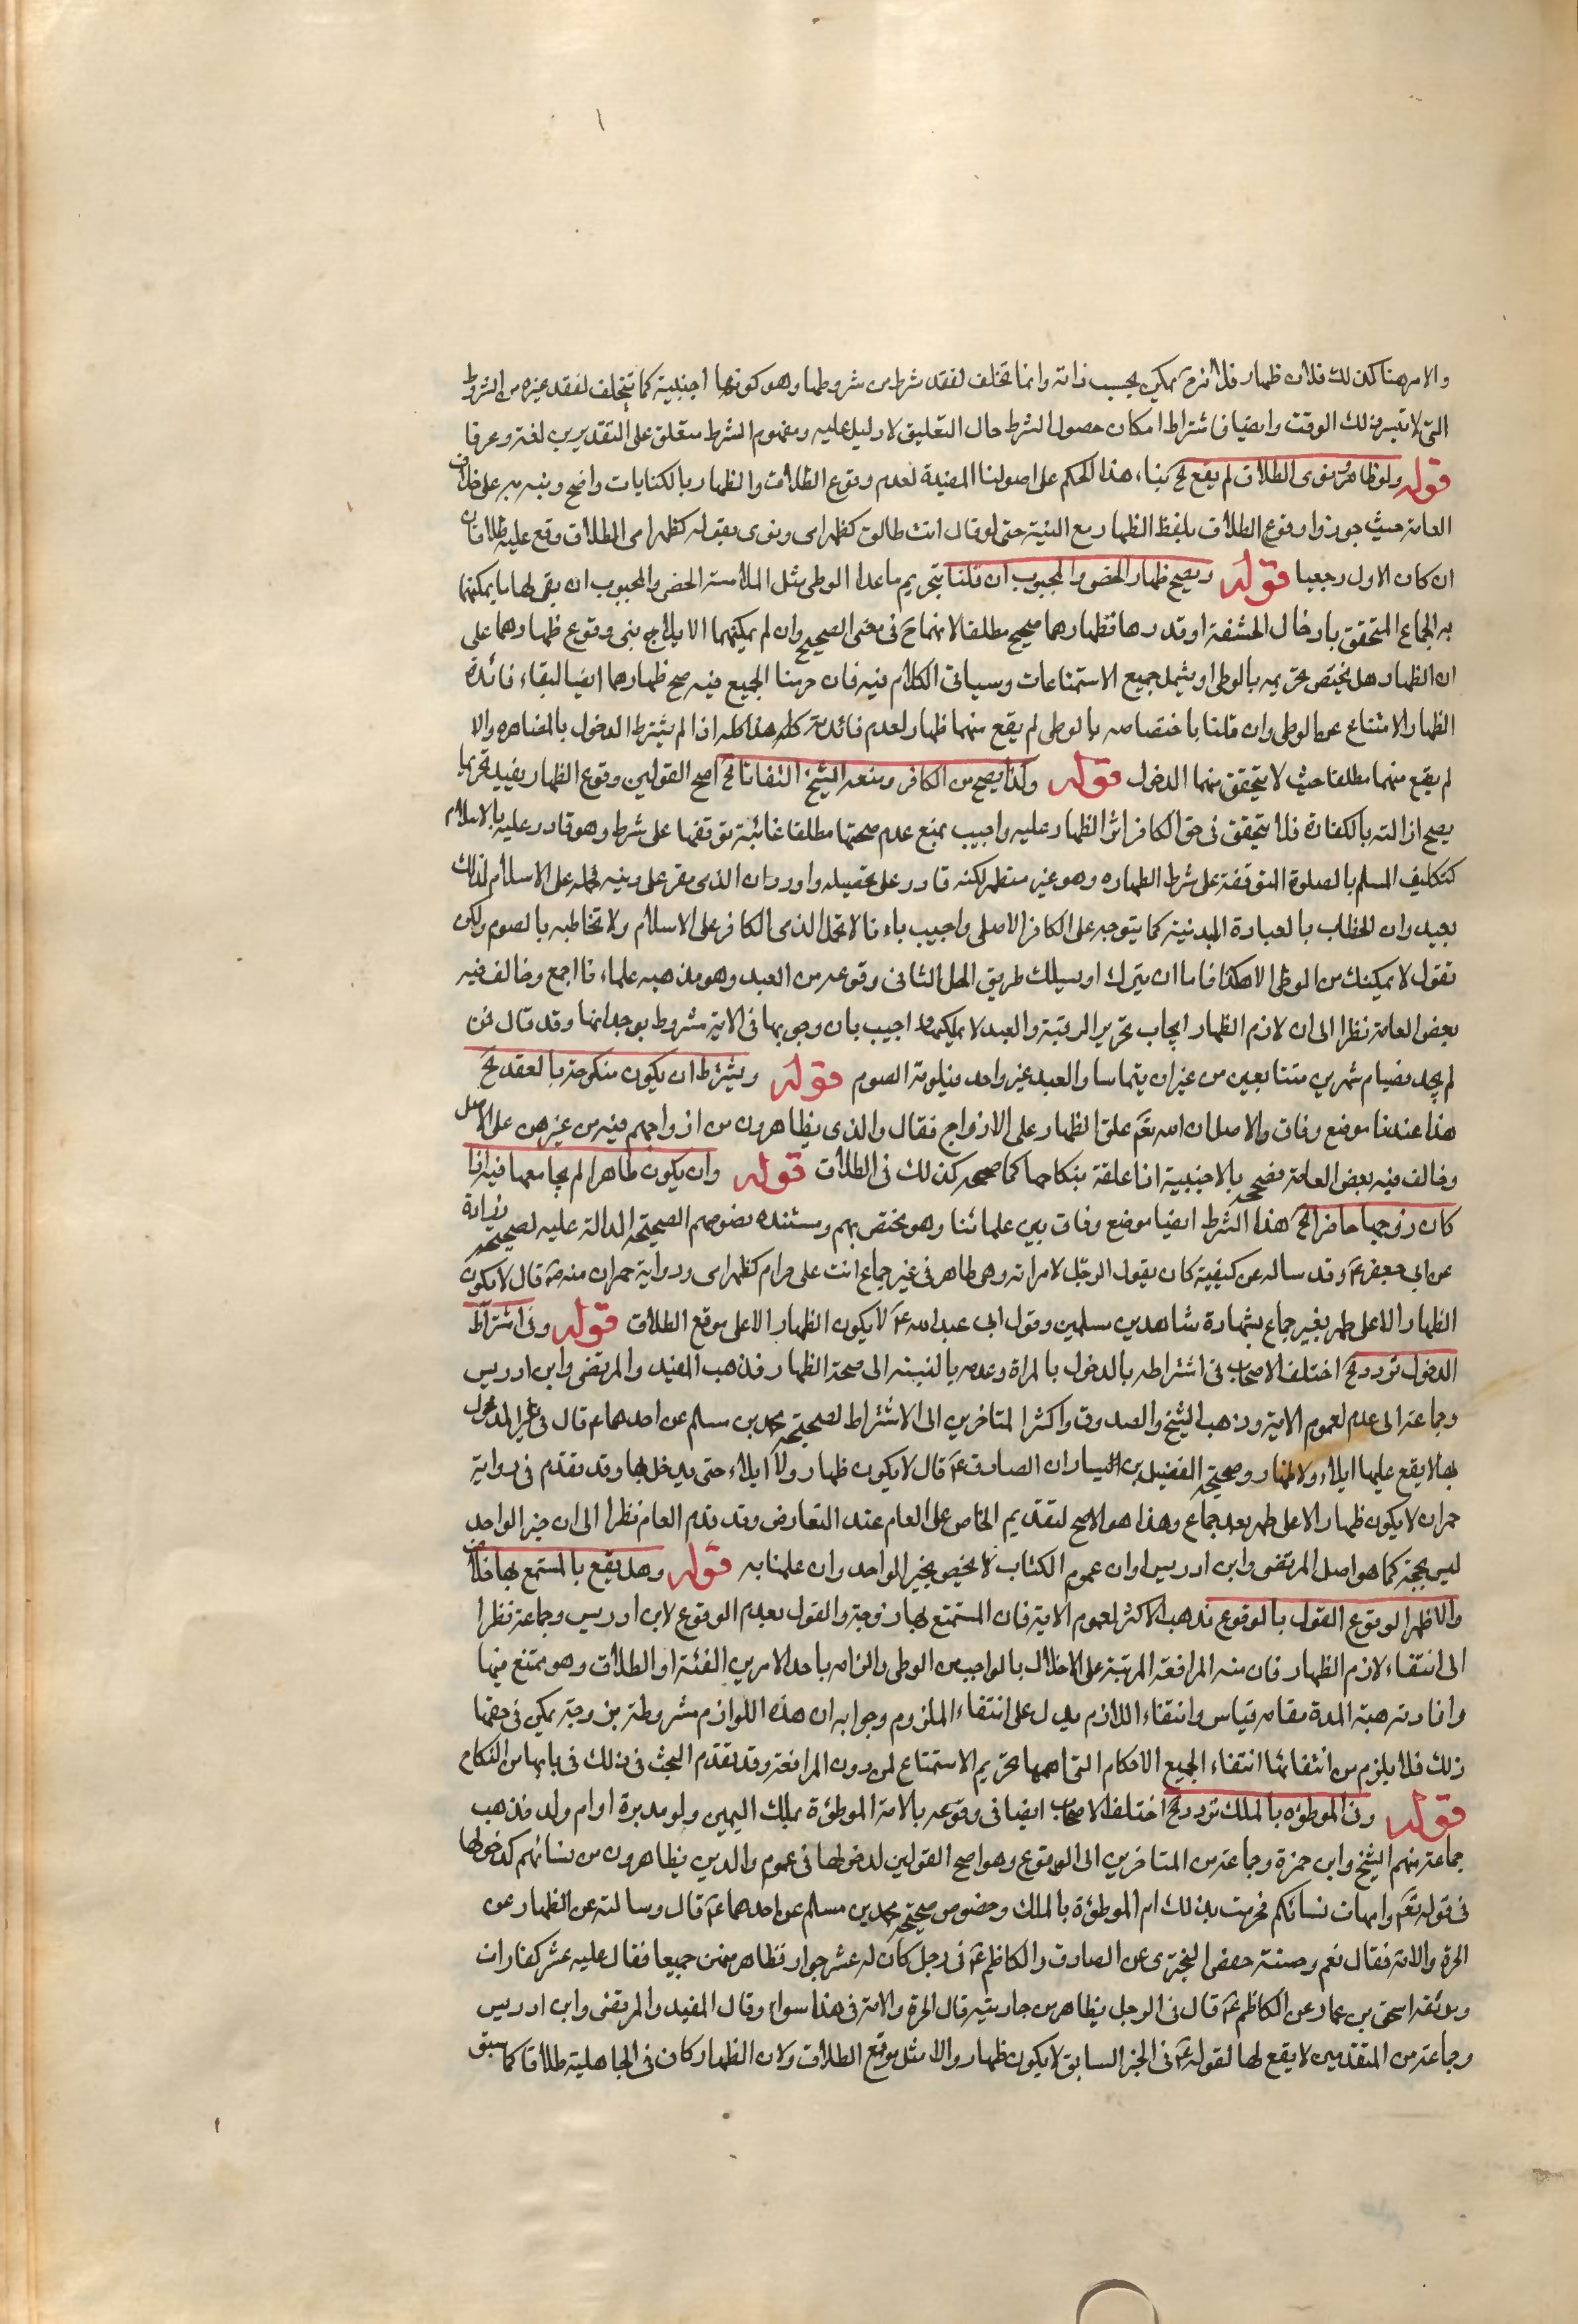 والامر هنا كذلك فلان ظهار فلانة ح ممكن بحسب ذاته وانما تخلف لفقد شرط من شروطها وهو كونها اجنبية كما يتخلف لفقد غيره من الشروط
التى لا تتيسر فى ذلك الوقت وايضا فاشتراط امكان حصول الشرط حال التعليق لا دليل عليه ومفهوم الشرط متعلق على التقديرين لغة وعرفا
قوله ولو ظاهر ونوى الطلاق لم يقع الخ بناء هذا الحكم على اصولنا المفيدة لعدم وقوع الطلاق والظهار بالكنايات واضح ونبه به على خلاف
العامة حيث جوزوا وقوع الطلاق بلفظ الظهار مع النية حتى لو قال انت طالق كظهر امى ونوى بقوله كظهر امى الطلاق وقع عليه طلاقان
ان كان الاول رجعيا قوله ويصح ظهار الخصى والمجبوب ان قلنا بتحريم ما عدا الوطى مثل الملامسة الخصى والمجبوب ان بقى لهما ما يمكنهما
به الجماع المتحقق بادخال الحشفة او قدرها فظهارهما صحيح مطلقا لانهما ح فى معنى الصحيح وان لم يمكنهما الايلاج بنى وقوع ظهارهما على
ان الظهار هل يختص تحريمه بالوطى او يشمل جميع الاستمتاعات وسياتى الكلام فيه فان حرمنا الجميع فيه صح ظهارهما ايضا لبقاء فائدة
الظهار الامتناع عن الوطى وان قلنا باختصاصه بالوطى لم يقع منهما ظهار لعدم فائدته هذا كله اذا لم يشترط الدخول بالمظاهره والا
لم يقع منهما مطلقا حيث لا يتحقق منهما الدخول قوله وكذا يصح من الكافر ومنعه الشيخ التفاتا الخ اصح القولين وقوع الظهار يفيد تحريما
يصح ازالته بالكفارة فلا يتحقق فى حق الكافر اثر الظهار عليه واجيب بمنع عدم صحتها مطلقا غايته توقفها على شرط وهو قادر عليه بالاسلام
كتكليف المسلم بالصلوة المتوقفة على شرط الطهاره وهو غير متطهر لكنه قادر على تحصيله واورد ان الذى مقر على دينه فحمله على الاسلام لذلك
بعيد وان الخطاب بالعبادة البدنية كما يتوجه على الكافر الاصلى واجيب باءنا لا نحمل الذمى الكافر على الاسلام ولا نخاطبه بالصوم ولكن
نقول لا يمكنك من الوطى الا هكذا فاما ان يترك او يسلك طريق الحل الثانى وقوعه من العبد وهو مذهب علماءنا اجمع وخالف فيه
بعض العامة نظرا الى ان لازم الظهار ايجاب تحرير الرقبة والعبد لا يملكها اجيب بان وجوبها فى الاية مشروط بوجدانها وقد قال فمن
لم يجد فصيام شهرين متتابعين من غير ان يتماسا والعبد غير واجد فيلزمه الصوم قوله ويشترط ان يكون منكوحة بالعقد الخ
هذا عندنا موضع وفاق والاصل ان الله تعم علق الظهار على الازواج فقال والذى يظاهرون من ازواجهم فيه من غيرهن على الاصل
وخالف فيه بعض العامة فصححه بالاجنبية اذا علقه بنكاحها كما صححه كذلك فى الطلاق قوله وان يكون طاهرا لم يجامعها فيه اذا
كان زوجها حاضرا الخ هذا الشرط ايضا موضع وفاق بين علمائنا وهو مختص بهم ومستنده نصوصهم الصحيحة الدالة عليه لصحيحة زرارة
عن ابى جعفر ع وقد ساله عن كيفيته كان يقول الرجل لامراته وهى طاهر فى غير جماع انت على حرام كظهر امى ورواية حمران عنه ع قال لا يكون
الظهار الا على طهر بغير جماع بشهادة شاهدين مسلمين وقول ابى عبدالله ع لا يكون الظهار الا على موقع الطلاق قوله وفى اشتراط
الدخول تردد الخ اختلف الاصحاب فى اشتراطه بالدخول بالمراة وعدمه بالنسبة الى صحة الظهار فذهب المفيد والمرتضى وابن ادريس
وجماعة الى عدم لعموم الاية وذهب الشيخ والصدوق واكثر المتاخرين الى الاشتراط لصحيحة محمد بن مسلم عن احدهما ع قال فى غير المدخول
بها لا يقع عليها ايلاء ولا ظهار وصحيحة الفضيل بن اليسار ان الصادق ع قال لا يكون ظهار ولا ايلاء حتى يدخل بها وقد تقدم فى رواية
حمران لا يكون ظهار الا على طهر بعد جماع وهذا هو الاصح لتقديم الخاص على العام عند التعارض وقد قدم العام نظرا الى ان خبر الواحد
ليس بحجة كما هو اصل المرتضى وابن ادريس او ان عموم الكتاب لا يخص بخبر الواحد وان علمنا به قوله وهل يقع بالمستمتع بها خلاف
والاظهر الوقوع القول بالوقوع مذهب الاكثر لعموم الاية فان المستمتع بها زوجة والقول بعدم الوقوع لابن ادريس وجماعة نظرا
الى انتفاء لازم الظهار فان منه المرافعة المرتبة على الاخلال بالواجب من الوطى والزامه باحد الامرين الفئة او الطلاق وهو ممتنع فيها
واقامة هبة المدة مقامه قياس وانتفاء اللازم يدل على انتفاء الملزوم وجوابه ان هذه اللوازم مشروطة بزوجة يمكن فى حقها
ذلك فلا يلزم من انتفائها انتفاء الجميع الاحكام التى اهمها تحريم الاستمتاع لمن دون المرافعة وقد تقدم البحث فى ذلك فى بابها من النكاح
قوله وفى الموطؤه بالملك تردد الخ اختلف الاصحاب ايضا فى وقوعه بالامة الموطؤة بملك اليمين ولو مدبرة او ام ولد فذهب
جماعة منهم الشيخ وابن حمزة وجماعة من المتاخرين الى الوقوع وهو اصح القولين لدخولها فى عموم والذين يظاهرون من نسائهم كدخولها
فى قوله تعم وامهات نسائكم فحرمت بذلك ام الموطؤة بالملك وخصوص صحيحة محمد بن مسلم عن احدهما ع قال وسالته عن الظهار عن
الحرة والامة فقال نعم وصنفة حفص البخترى عن الصادق والكاظم ع فى رجل كان له عشر جوار فظاهر منهن جميعا فقال عليه عشر كفارات
وموثقة اسحق بن عمار عن الكاظم ع قال فى الرجل يظاهر من جاريته قال الحرة والامة فى هذا سواء وقال المفيد والمرتضى وابن ادريس
وجماعة من المتقدمين لا يقع لها لقوله ع فى الخبر السابق لا يكون ظهار والا مثل موقع الطلاق ولان الظهار كان فى الجاهلية طلاقا كما سبق